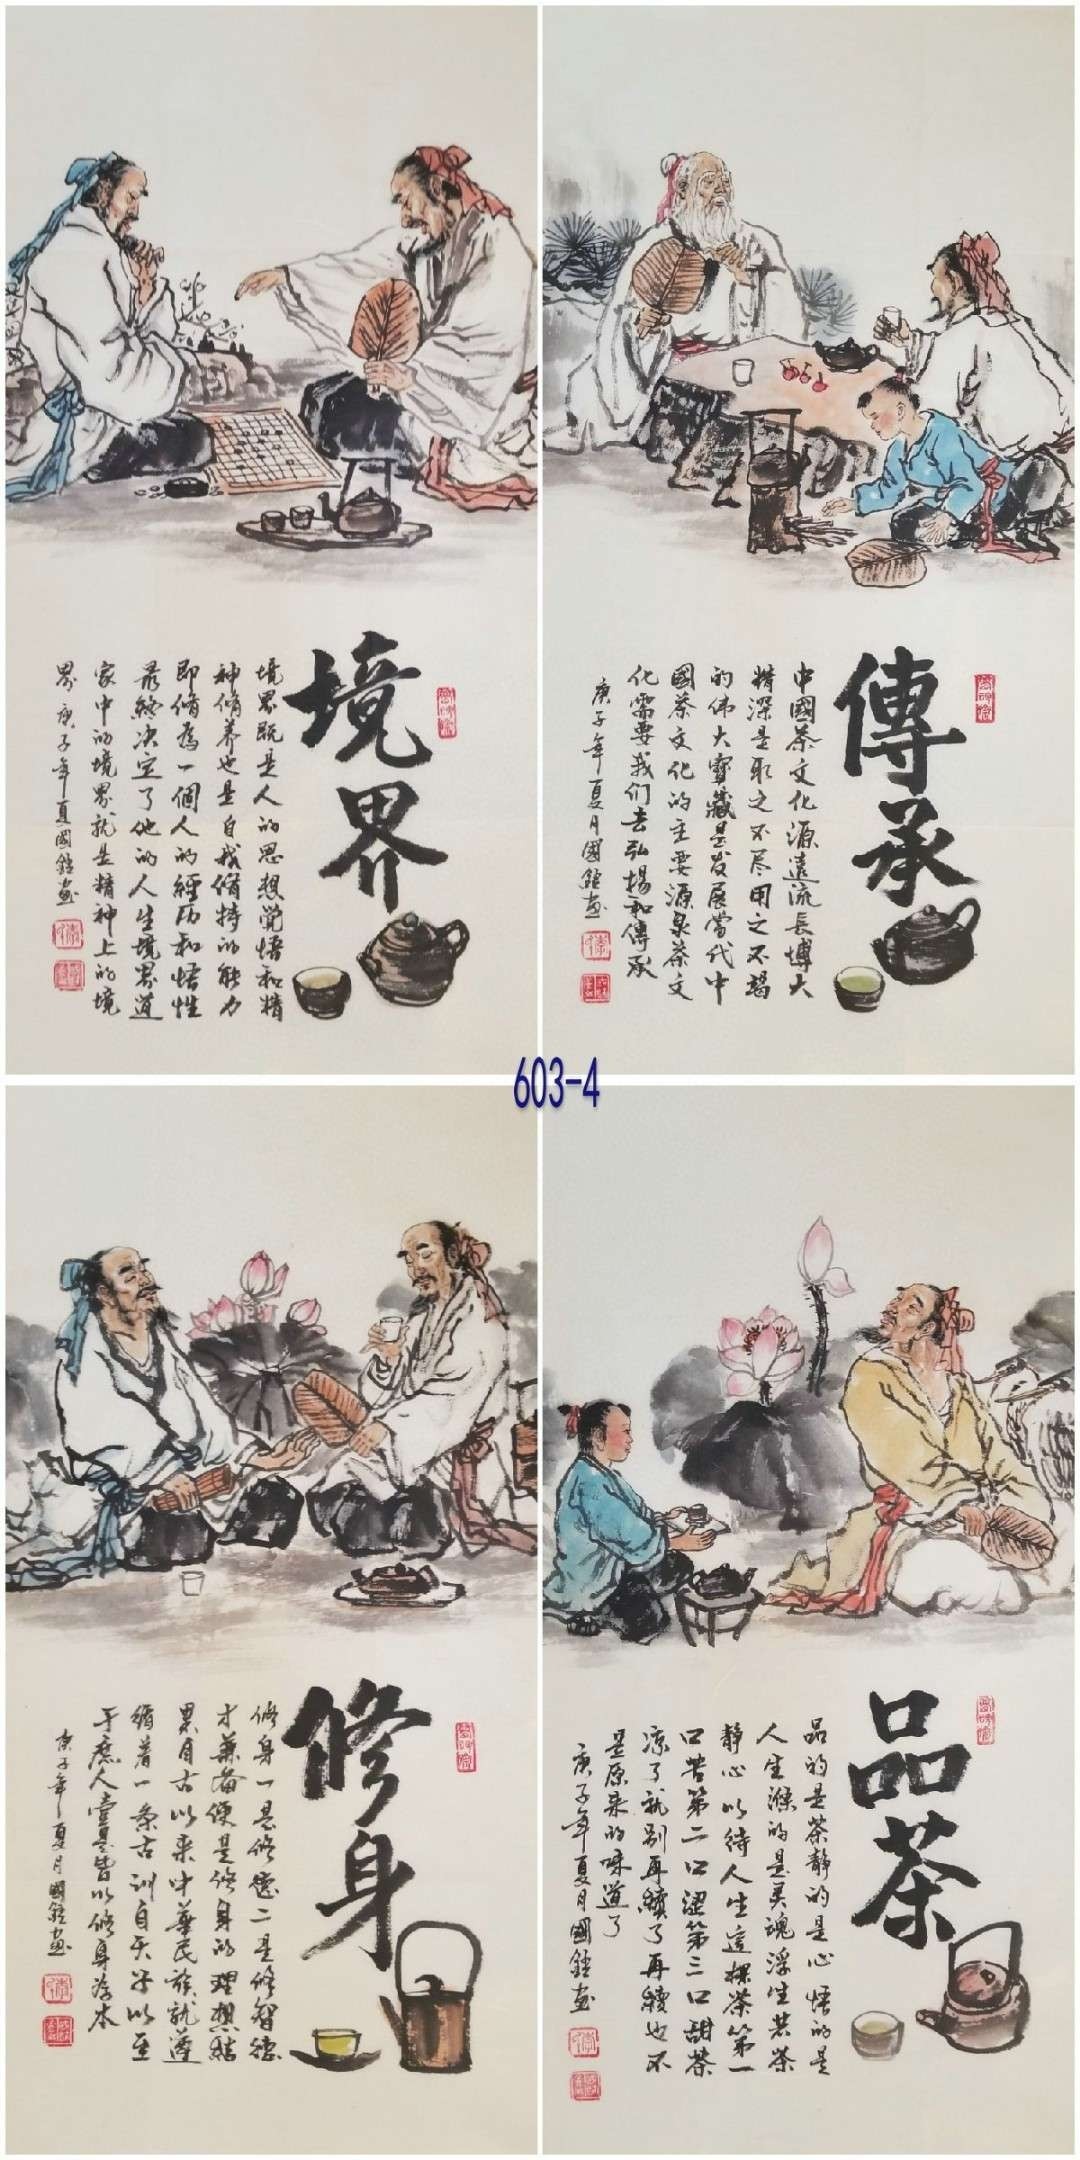 境界
境界既是人的思想覺悟和精
神脩养也是自我脩持的能力
即脩為一個人的經历和悟性
最終决定了他的人生境界道
家中的境界就是精神上的境
界 庚子年夏國 畫
傳承
中國茶文化源遠流長博大
精深是取之不尽用之不竭
的伟大寶藏是发展當代中
國茶文化的主要源泉茶文
化需要我们去弘揚和傳承
庚子年夏月國 畫
603-4
修身
修身一是修德二是修智德
才兼備便是修身的理想結
果自古以来中華民族就遵
循着一条古训自天子以至
于庶人壹是皆以修身為本
庚子年夏月國 畫
品茶
品的是茶静的是心悟的是
人生滌的是灵魂浮生若茶
静心以待人生這棵茶第一
口苦第二口涩第三口甜茶
凉了就别再續了再續也不
是原来的味道了
庚子年夏月國 畫